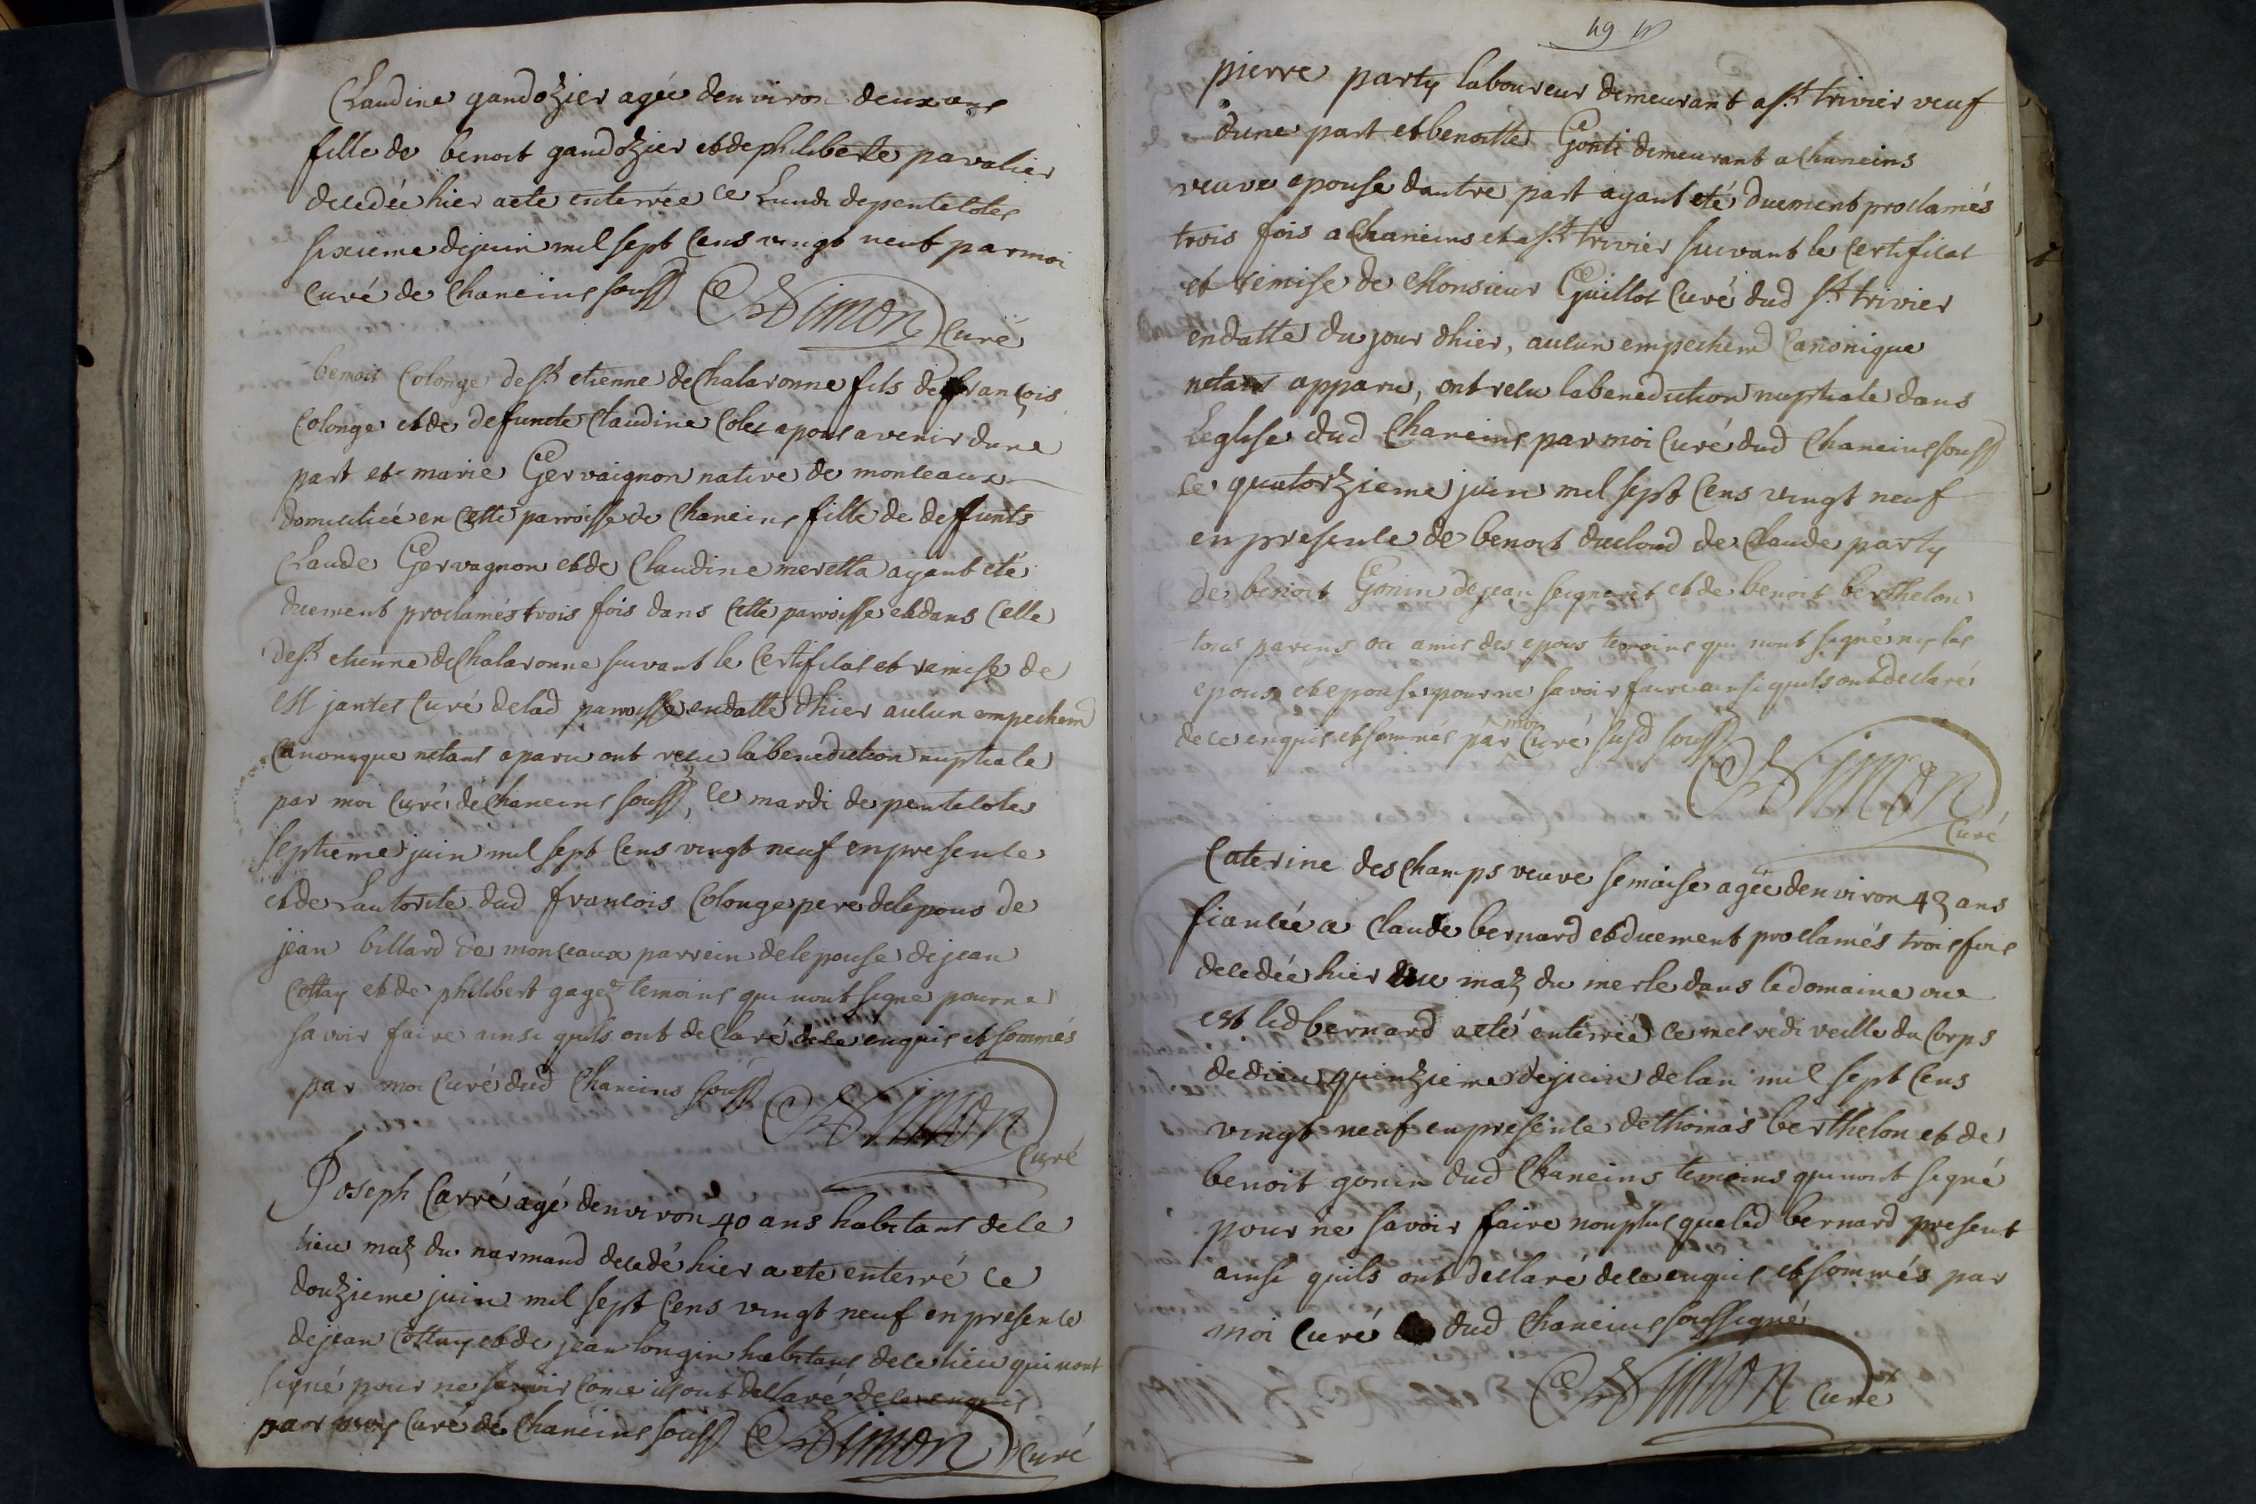 Claudine gandozier agée denviron deux ans
fille de benoit gandozier et de philiberte pavalier
decedée hier a ete enterrée ce Lundi de pentecotes
sixieme de juin mil sept cens vingt neuf par moi
curé de Chaneins souss
Simon Curé
benoit Colonge de st etienne de Chalaronne fils de françois
Colonge et de defuncte Claudine Colet apous avenir dune
part et marie Gervaignon native de monceaux
domiciliée en cette parroisse de Chaneins fille de deffunts
Claude Gervagnon et de Claudine meretta ayant eté
duement proclamés trois fois dans cette parroisse et dans celle
de st etienne de Chalaronne suivant le certificat et remise de
Mr jantet curé de lad parroisse en datte dhier aucun empechemd
Canonique netant aparu ont recu la benediction nuptiale
par moi curé de Chaneins souss, ce mardi de pentecote
septieme juin mil sept cens vingt neuf en presence
et de Lautorité dud francois Colonge pere de lepous de
jean billard de monceaux parrein de lepouse de jean
Cottay et de philibert gagez temoins qui nont signé pour ne
savoir faire ainsi quils ont declaré de ce enquis et sommés
par moi curé dud Chaneins souss
Simon Curé
Joseph Carré agé denviron 40 ans habitant de ce
lieu maz du narmand decedé hier a ete enterré ce
douzieme juin mil sept cens vingt neuf en presence
de jean Cottay et de jean longin habitans de ce lieu qui nont
signé pour ne savoir come ils ont declaré de ce enquis
par moy curé de Chaneins souss Simon Curé
49
pierre party laboureur demeurant a st trivier veuf
dune part et benoitte Gonti demeurant a Chaneins
veuve epouse dautre part ayant eté duement proclamés
trois fois a Chaneins et a st trivier suivant le certificat
et remise de Monsieur Guillot curé dud st trivier
en datte du jour dhier, aucun empechemd Canonique
netant apparu, ont recu la benediction nuptiale dans
Leglise dud Chaneins par moi curé dud Chaneins souss
ce quatorzieme juin mil sept cens vingt neuf
en presence de benoit ducloud de Claude party
de benoit Gonin de jean seignoret et de benoit berthelon
tous parens ou amis des epous temoins qui nont signé ny les
epoux et epouse pour ne savoir faire ainsi quils ont declaré
de ce enquis et sommés par moi curé susd souss
Simon Curé
Caterine des Champs veuve semoise agée denviron 43 ans
fiancée a Claude bernard et duement proclamés trois fois
decedée hier au maz du merle dans le domaine ou
est led bernard a eté enterrée ce mecredi veille du Corps
de dieu quinzieme de juin de lan mil sept cens
vingt neuf en presence de thomas berthelon et de
benoit gonin dud Chaneins temoins qui nont signé
pour ne savoir faire non plus que led bernard present
ainsi quils ont declaré de ce enquis et sommés par
moi curé dud Chaneins soussigné
Simon Curé